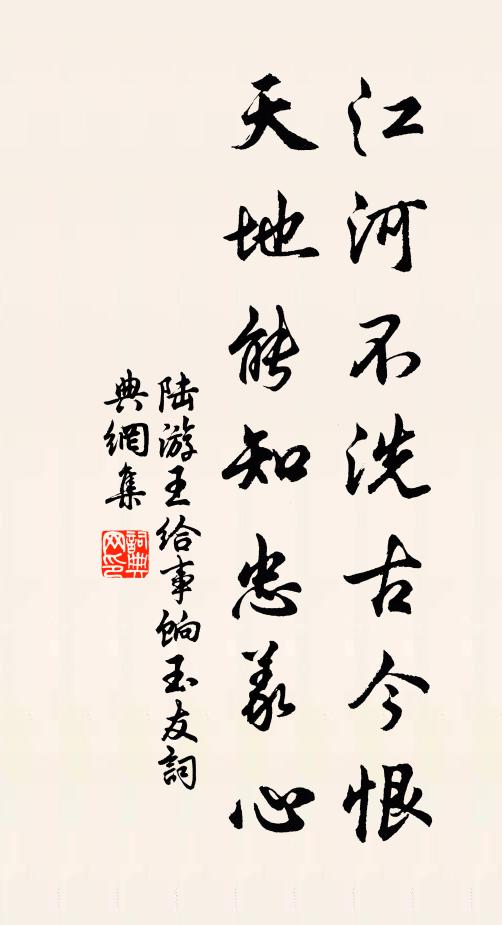 江河不洗古今恨
天地能知忠義心
陆游王给事饷玉友詞
典網集
詞典网印